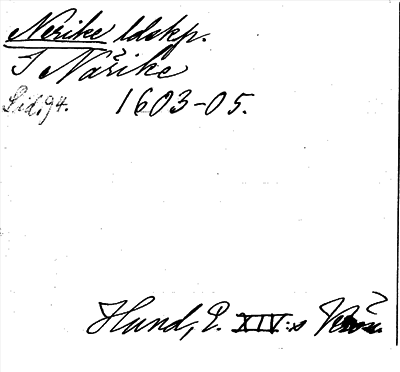 Nerike ldskp.
I Nårike
Sid. 94. 1603-05.
Hund, E. XIV:s Krön.